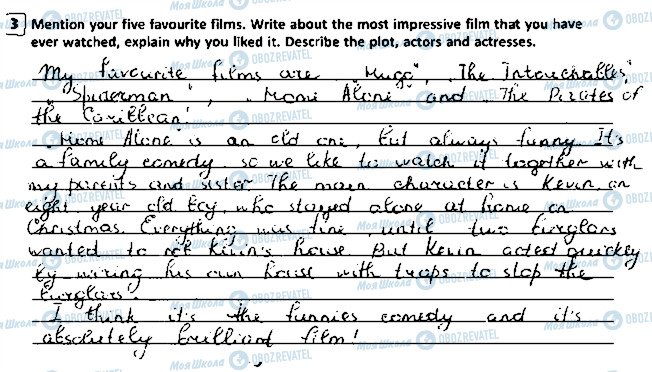 3 Mention your five favourite films. Write about the most impressive film that you have
ever watched, explain why you liked it. Describe the plot, actors and actresses.
My favourite films are „Hugo", „The Intouchables",
„Spiderman", „Home Alone" and „The Pirates of
the Caribbean".
„Home Alone" is an old one, but always funny. It's
a family comedy, so we like to watch it together with
my parents and sister. The main character is Kevin, an
eight-year old boy, who stayed alone at home on
Christmas. Everything was fine until two burglars
wanted to rob Kevin's house. But Kevin acted quickly
by wiring his own house with traps to stop the
burglars.
I think it's the funnies comedy and it's
absolutely brilliant film!
Моя Школа OBOZREVATEL